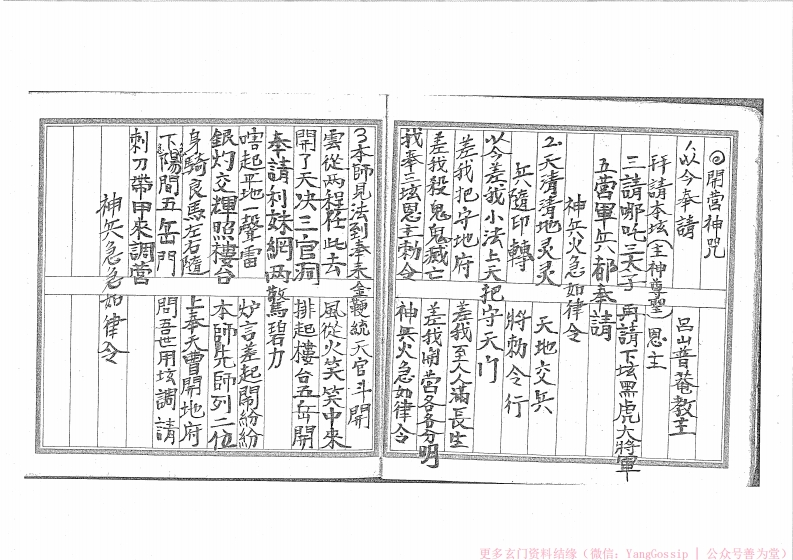 ◎開营神咒
以今奉請 呂山普菴教主
拜請本垓(主神尊聖)恩主
三請哪吒三太子 再請下垓黑虎大將軍
五营軍兵都奉請
神兵火急如律令
2.天清清地灵灵 天地交兵
兵隨印轉 將勅令行
以今差我小法上天把守天门
差我把守地府 差我至人人滿長生
差我殺鬼鬼滅亡 差我開营各各分明
我奉三垓恩主勅令 神兵火急如律令
3本師見法到奉來金鞭統天官斗開
雲從两程任此去 風從火笑笑中來
開了天决三官洞 排起樓台五岳開
奉請利妹網两驚碧力
啱起平地一聲雷 炉言差起開紛紛
銀灼交輝照樓台 本師先師列二位
身騎良馬左右隨 上奉天曹開地府
下陽間五岳门 問吾世用垓調請
刺刀帶甲來調营
神兵急急如律令
更多玄门资料结缘（微信：YangGossip | 公众号善为堂）